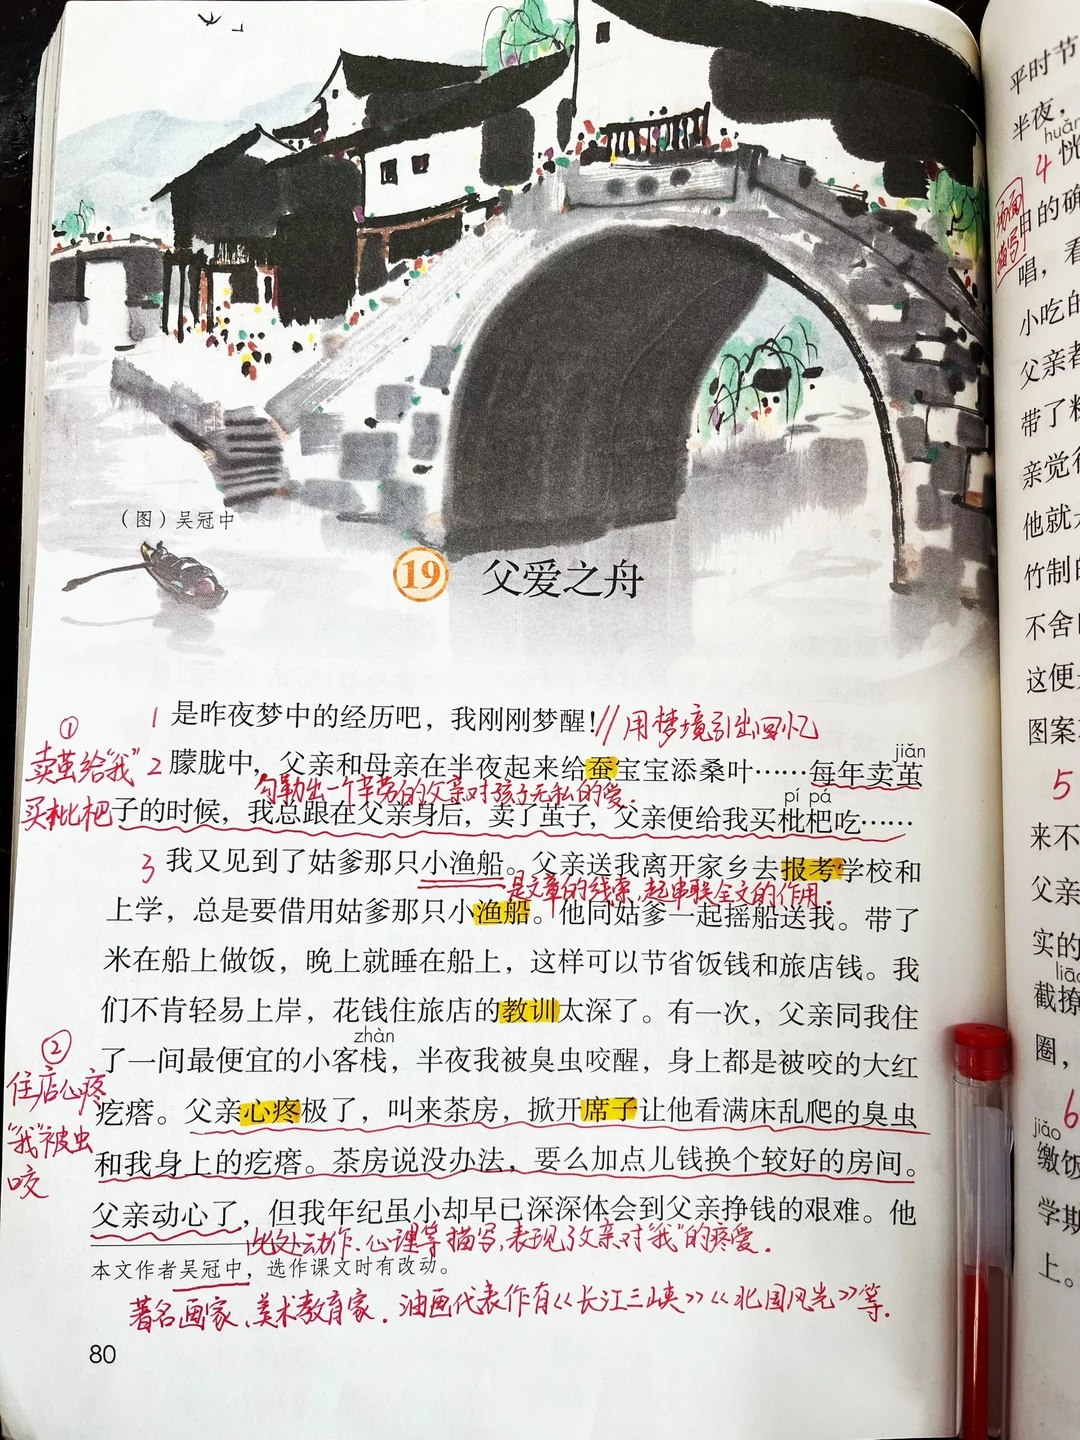 (图)吴冠中
19 父爱之舟
1 是昨夜梦中的经历吧，我刚刚梦醒！// 用梦境引出回忆
①
卖茧给“我”
买枇杷
jiǎn
2 朦胧中，父亲和母亲在半夜起来给蚕宝宝添桑叶……每年卖茧
勾勒出一个辛劳的父亲对孩子无私的爱.
pí pá
子的时候，我总跟在父亲身后，卖了茧子，父亲便给我买枇杷吃……
3 我又见到了姑爹那只小渔船。父亲送我离开家乡去报考学校和
是文章的线索，起串联全文的作用.
上学，总是要借用姑爹那只小渔船。他同姑爹一起摇船送我。带了
米在船上做饭，晚上就睡在船上，这样可以节省饭钱和旅店钱。我
们不肯轻易上岸，花钱住旅店的教训太深了。有一次，父亲同我住
zhàn
了一间最便宜的小客栈，半夜我被臭虫咬醒，身上都是被咬的大红
②
住店心疼
“我”被虫
咬
疙瘩。父亲心疼极了，叫来茶房，掀开席子让他看满床乱爬的臭虫
和我身上的疙瘩。茶房说没办法，要么加点儿钱换个较好的房间。
父亲动心了，但我年纪虽小却早已深深体会到父亲挣钱的艰难。他
此处动作、心理等描写，表现了父亲对“我”的疼爱.
本文作者吴冠中，选作课文时有改动。
著名画家、美术教育家. 油画代表作有《长江三峡》《北国风光》等.
80
平时节
半夜，
huǎn
4 恍
场面
描写
目的确
唱，看
小吃的
父亲者
带了粽
亲觉得
他就
竹制的
不舍
这便
图案
5
来不
父亲
实的
liáo
截撩
圈，
6
jiǎo
缴饭
学期
上。